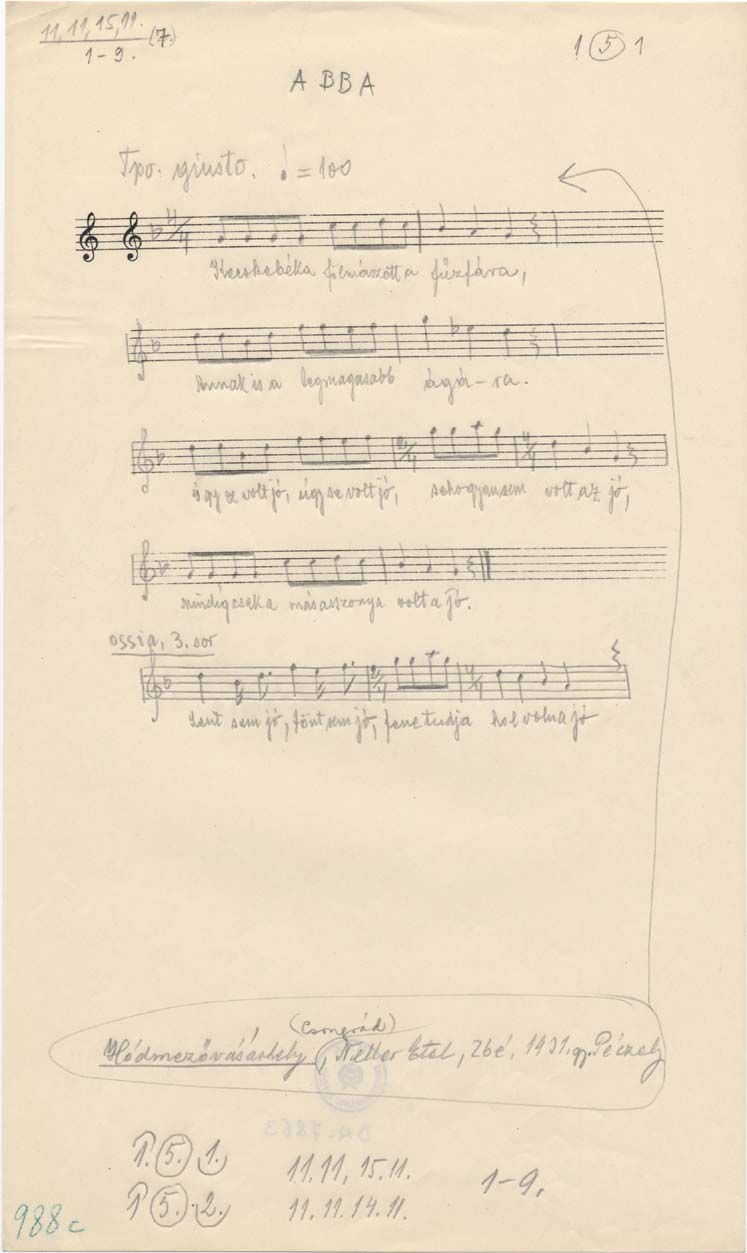 11, 11, 15, 11. (7.)
1-9.
1 5 1
A B B A
Tpo. giusto. ♩ = 100
4/4
Kecskebéka fölmászott a fűzfára,
Annak is a legmagasabb ágá-ra.
2/4 4/4
úgy se volt jó, úgy se volt jó, sehogyansem volt az jó,
mindig csak a másasszonya volt a jó.
ossia, 3. sor
2/4 4/4
Lent sem jó, fönt sem jó, fene tudja hol volna jó
(Csongrád)
Hódmezővásárhely, Etel, 26 é, 1931. gy. Péczely
1. 5. 1. 11.11, 15.11. 1-9.
1 5. 2. 11.11.14.11.
988 c